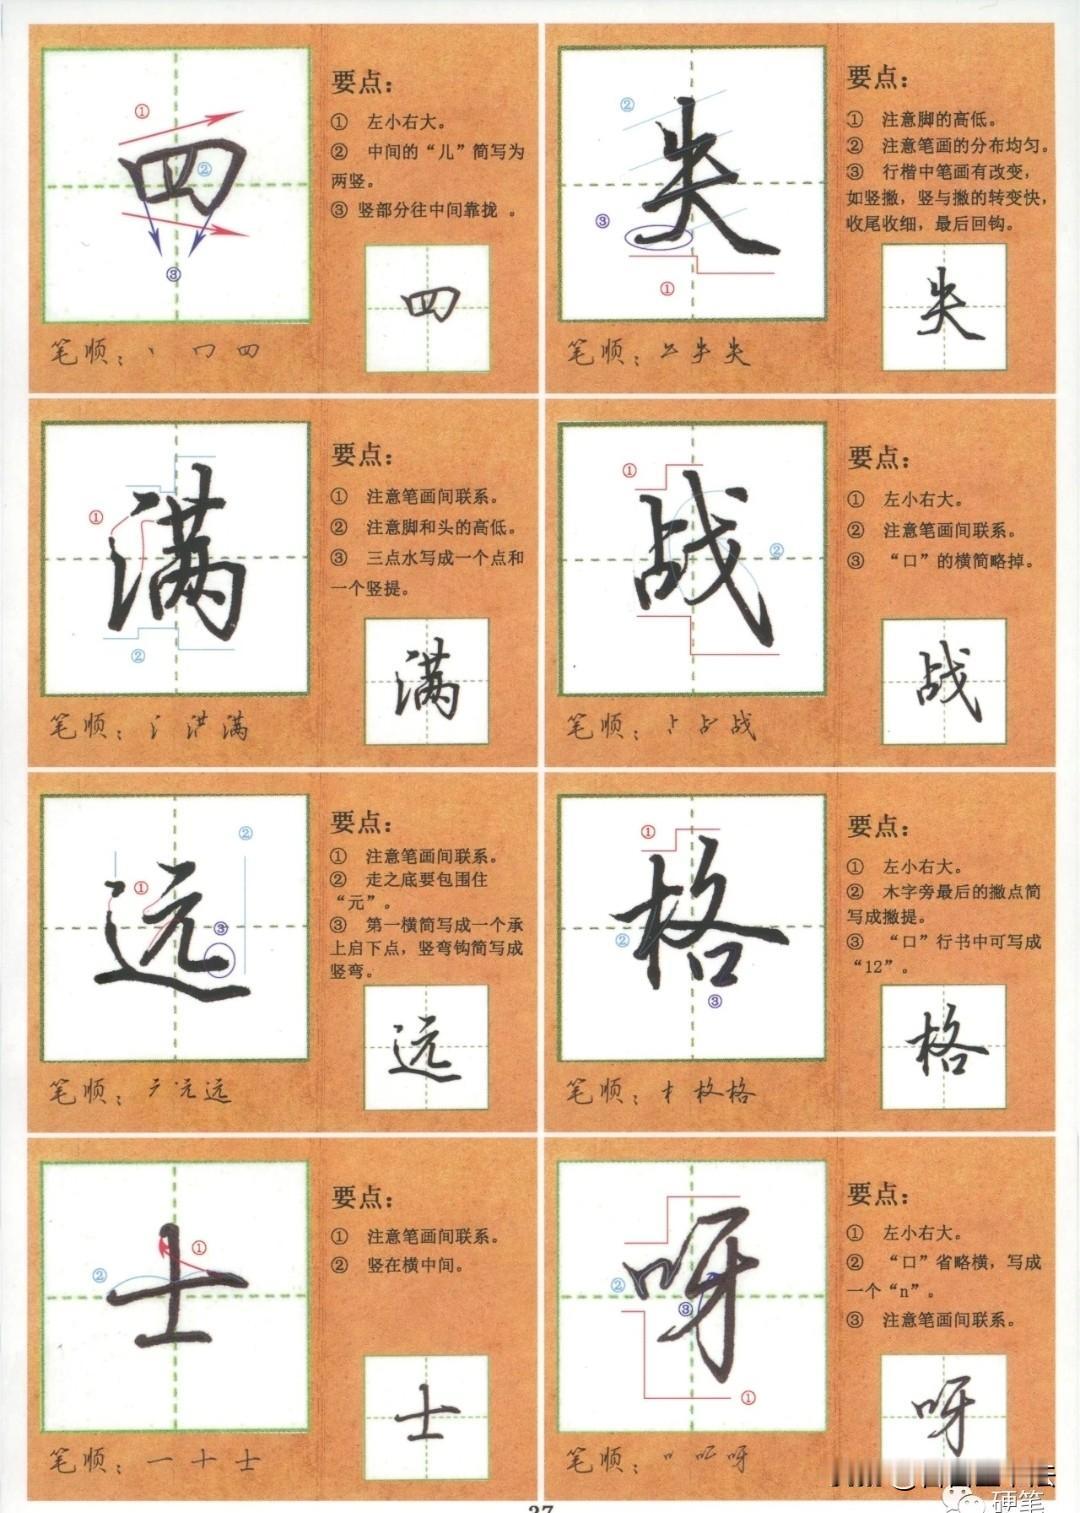 四
①
②
③
要点：
① 左小右大。
② 中间的“儿”简写为
两竖。
③ 竖部分往中间靠拢 。
四
笔顺：丶 冂 四
失
②
③
①
要点：
① 注意脚的高低。
② 注意笔画的分布均匀。
③ 行楷中笔画有改变，
如竖撇，竖与撇的转变快，
收尾收细，最后回钩。
失
笔顺：失
满
①
②
要点：
① 注意笔画间联系。
② 注意脚和头的高低。
③ 三点水写成一个点和
一个竖提。
满
笔顺：氵 满
战
①
②
要点：
① 左小右大。
② 注意笔画间联系。
③ “口”的横简略掉。
战
笔顺：⺊ 占 战
远
①
②
③
要点：
① 注意笔画间联系。
② 走之底要包围住
“元”。
③ 第一横简写成一个承
上启下点，竖弯钩简写成
竖弯。
远
笔顺：元 远
格
①
②
③
要点：
① 左小右大。
② 木字旁最后的撇点简
写成撇提。
③ “口”行书中可写成
“12”。
格
笔顺：格
士
①
②
要点：
① 注意笔画间联系。
② 竖在横中间。
士
笔顺：一 十 士
呀
②
③
①
要点：
① 左小右大。
② “口”省略横，写成
一个“n”。
③ 注意笔画间联系。
呀
笔顺：呀
硬笔
37